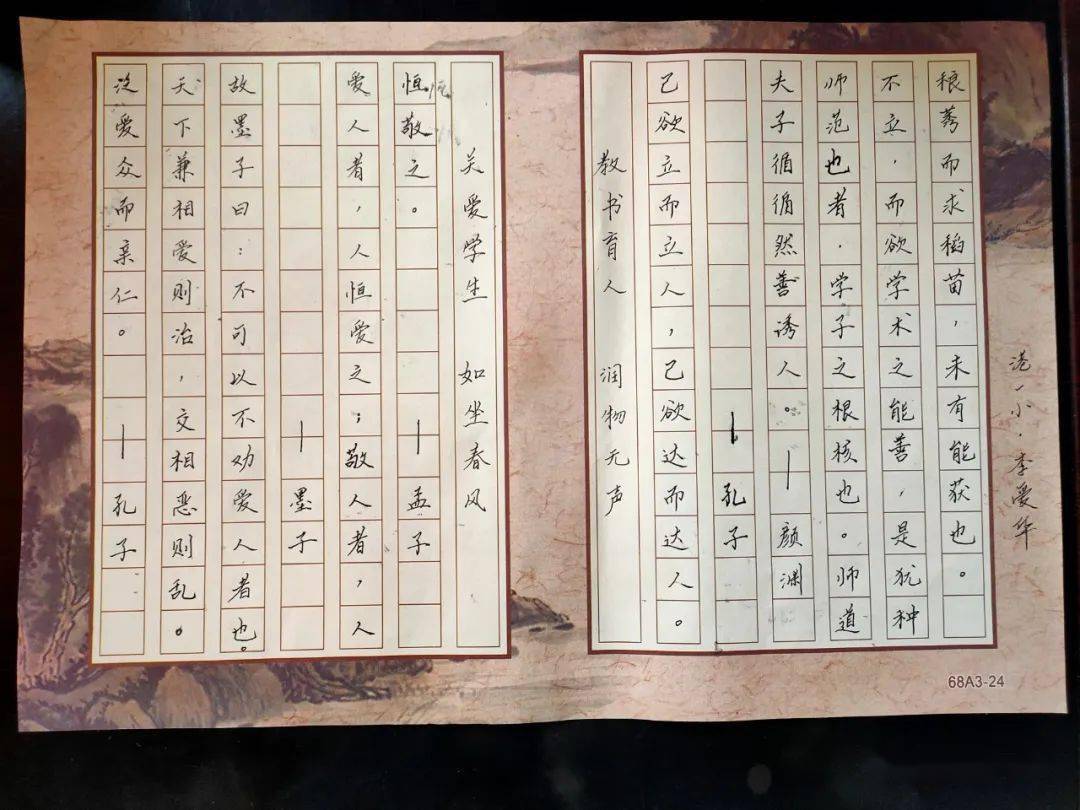 泛爱众而亲仁。—孔子
天下兼相爱则治，交相恶则乱。
故墨子曰：不可以不劝爱人者也。
—墨子
爱人者，人恒爱之；敬人者，人
恒敬之。—孟子
关爱学生 如坐春风
教书育人 润物无声
己欲立而立人，己欲达而达人。
—孔子
夫子循循然善诱人。—颜渊
师范也者，学子之根核也。师道
不立，而欲学术之能善，是犹种
稂莠而求稻苗，未有能获也。
港一小·李爱华
68A3-24